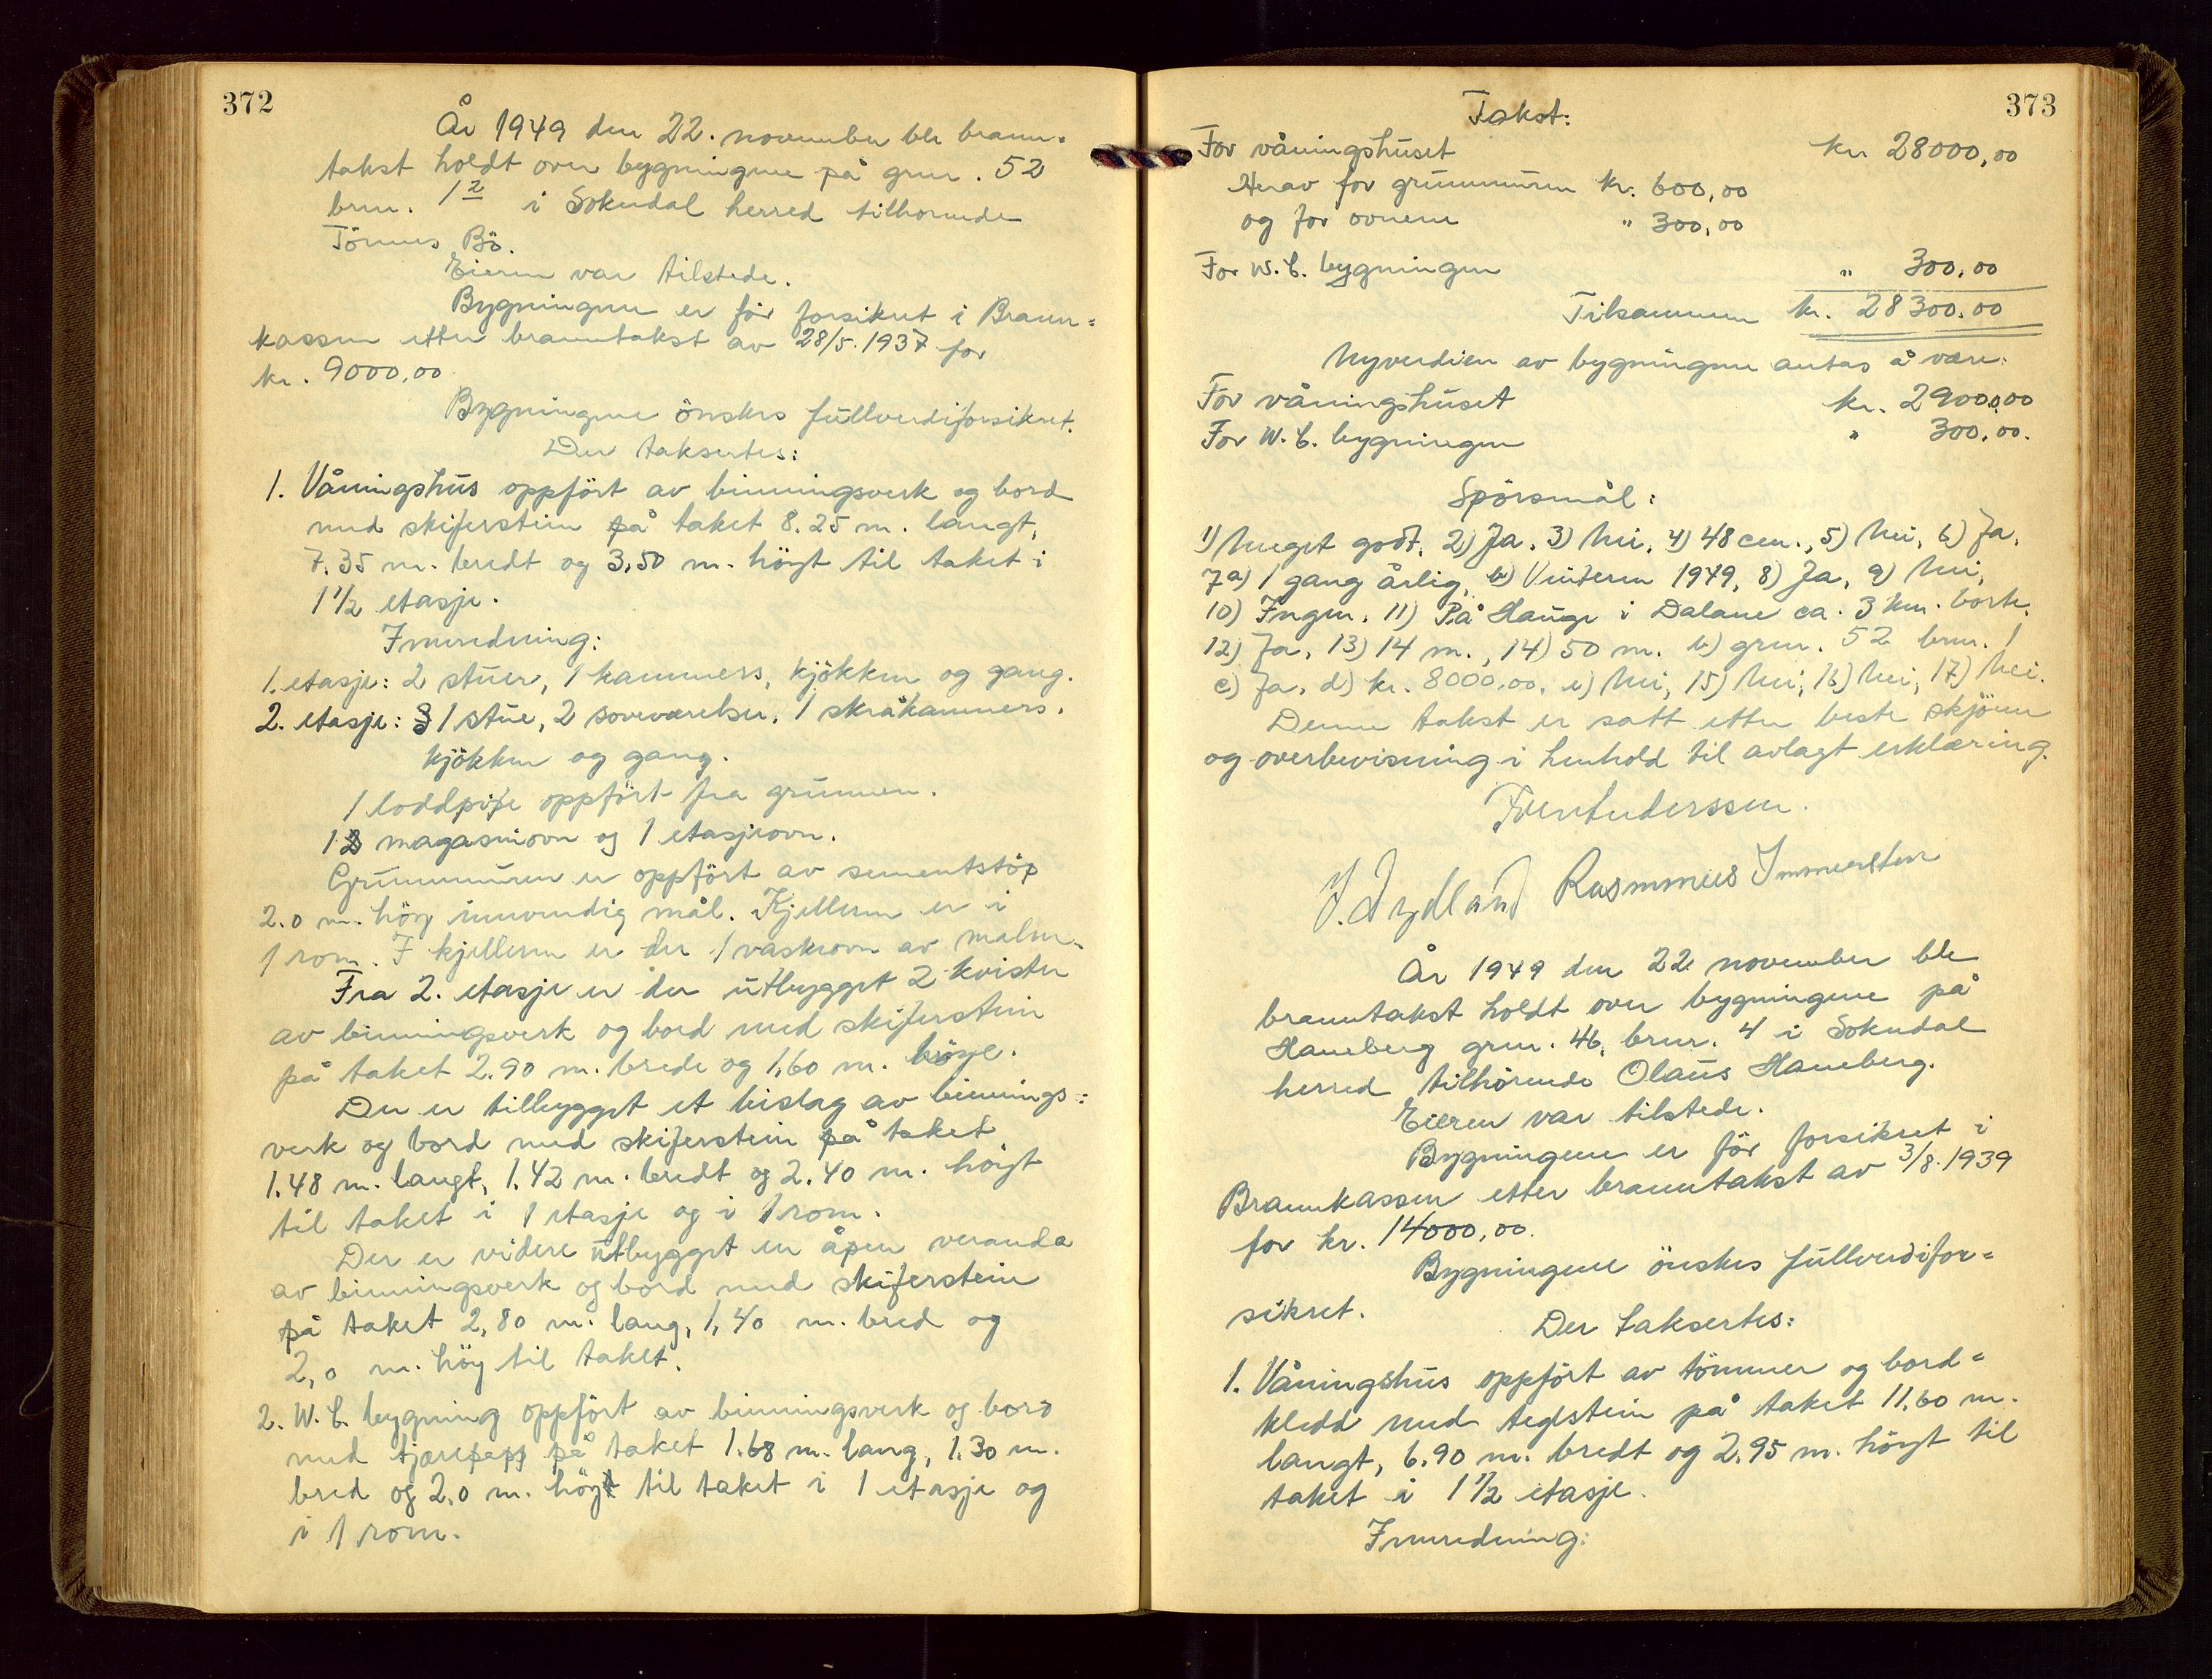 372
År 1949 den 22. november ble brann=
takst holdt over bygningene på gnr. 52
bnr. 1² i Sokndal herred tilhörende
Tönnes Bö.
Eieren var tilstede.
Bygningene er för forsikret i Brann=
kassen etter branntakst av 28/5. 1937 for
kr. 9000,00
Bygningene önskes fullverdiforsikret.
Der taksertes:
1. Våningshus oppfört av binningsverk og bord
med skiferstein på taket 8.25 m. langt,
7.35 m. bredt og 3,50 m. höyt til taket i
1 1/2 etasje.
Innredning:
1. etasje: 2 stuer, 1 kammers, kjökken og gang.
2. etasje: 1 stue, 2 soveværelser, 1 skråkammers,
kjökken og gang.
1 loddpipe oppfört fra grunnen.
1 magasinovn og 1 etasjeovn.
Grunnmuren er oppfört av sementstöp
2.0 m. höy innvendig mål. Kjelleren er i
1 rom. I kjelleren er der 1 vaskeovn av malm.
Fra 2. etasje er der utbygget 2 kvister
av binningsverk og bord med skiferstein
på taket 2.90 m. brede og 1,60 m. höye.
Der er tilbygget et bislag av binnings=
verk og bord med skiferstein på taket
1.48 m. langt, 1.42 m. bredt og 2.40 m. höyt
til taket i 1 etasje og i 1 rom.
Der er videre utbygget en åpen veranda
av binningsverk og bord med skiferstein
på taket 2,80 m. lang, 1,40 m. bred og
2,0 m. höy til taket.
2. W.C. bygning oppfört av binningsverk og bord
med tjærepapp på taket 1.68 m. lang, 1.30 m.
bred og 2.0 m. höy til taket i 1 etasje og
i 1 rom.
373
Takst:
For våningshuset kr 28000,00
Herav for grunnmuren kr. 600,00
og for ovnene " 300,00
For W.C. bygningen " 300,00
Tilsammen kr. 28300,00
Nyverdien av bygningene antas å være:
For våningshuset kr. 29000,00
For W.C. bygningen " 300,00.
Spörsmål:
1) Meget godt, 2) Ja, 3) Nei, 4) 48 cm., 5) Nei, 6) Ja,
7a) 1 gang årlig, b) Vinteren 1949, 8) Ja, 9) Nei,
10) Ingen, 11) På Hauge i Dalane ca. 3 km. borte,
12) Ja, 13) 14 m., 14) 50 m. b) gnr. 52 bnr. 1
c) Ja, d) kr. 8000,00, e) Nei, 15) Nei, 16) Nei, 17) Nei.
Denne takst er satt etter beste skjönn
og overbevisning i henhold til avlagt erklæring.
J. Dydland Rasmmus Immerstein
År 1949 den 22 november ble
branntakst holdt over bygningene på
Haneberg gnr. 46, bnr. 4 i Sokndal
herred tilhörende Olaus Haneberg.
Eieren var tilstede.
Bygningene er för forsikret i
Brannkassen etter branntakst av 3/8. 1939
for kr. 14000,00.
Bygningene önskes fullverdifor=
sikret.
Der taksertes:
1. Våningshus oppfört av tömmer og bord=
kledd med teglstein på taket 11,60 m.
langt, 6.90 m. bredt og 2.95 m. höyt til
taket i 1 1/2 etasje.
Innredning: